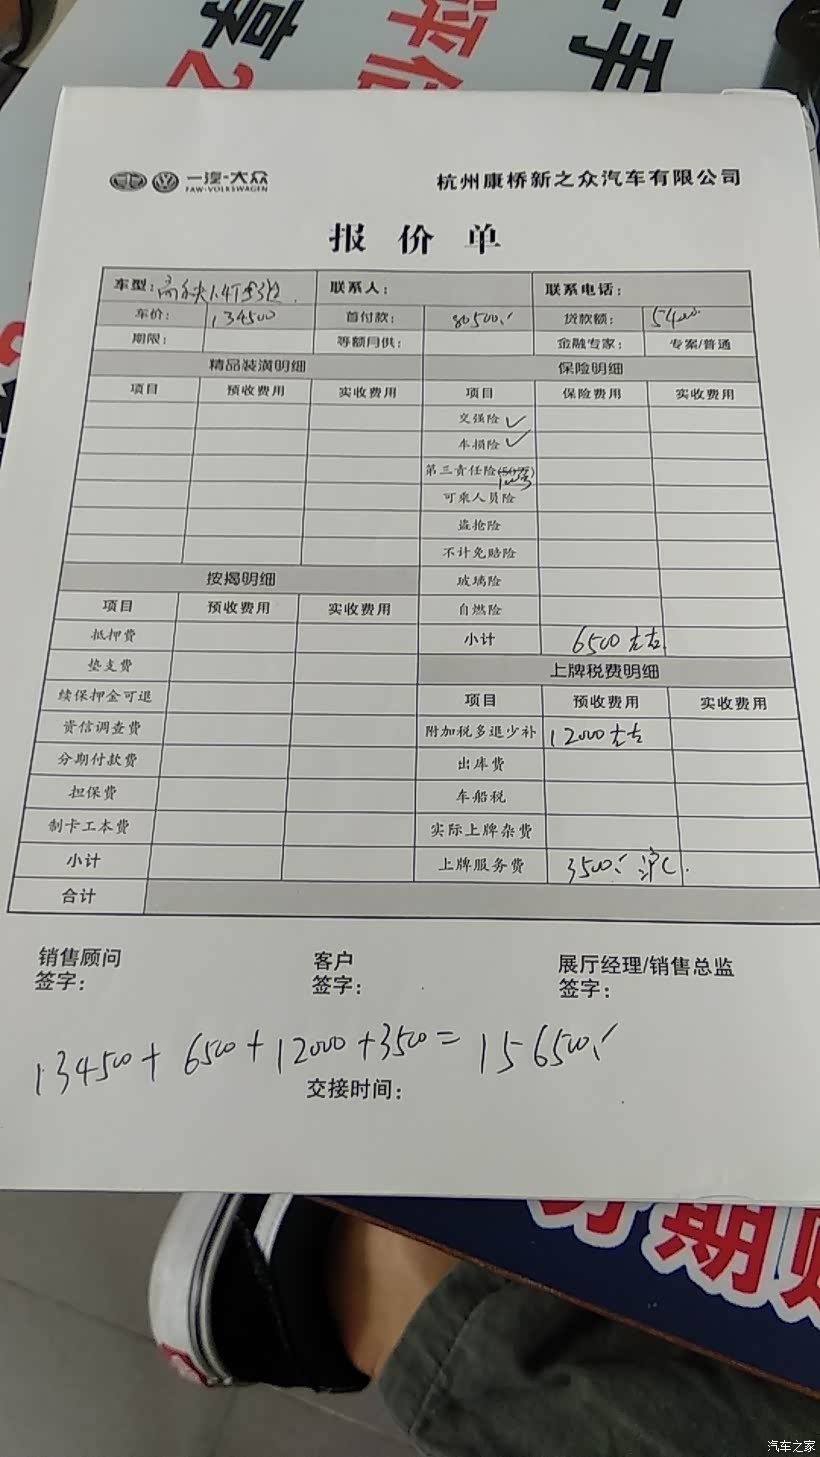 享之
评估
二手
一汽-大众
FAW-VOLKSWAGEN
杭州康桥新之众汽车有限公司
报价单
车型: 高尔夫1.4T 联系人: 联系电话:
车价: 134500 首付款: 80500 贷款额: 54000
期限: 等额月供: 金融专家: 专案/普通
精品装潢明细 保险明细
项目 预收费用 实收费用 项目 保险费用 实收费用
交强险 ✓
车损险 ✓
第三责任险(50万) 100万
可乘人员险
盗抢险
不计免赔险
按揭明细 玻璃险
项目 预收费用 实收费用 自燃险
抵押费 小计 6500左右
垫支费 上牌税费明细
续保押金可退 项目 预收费用 实收费用
资信调查费 附加税多退少补 12000左右
分期付款费 出库费
担保费 车船税
制卡工本费 实际上牌杂费
小计 上牌服务费 3500 沪C.
合计
销售顾问 签字: 客户 签字: 展厅经理/销售总监 签字:
134500+6500+12000+3500=156500
交接时间:
分期购
汽车之家